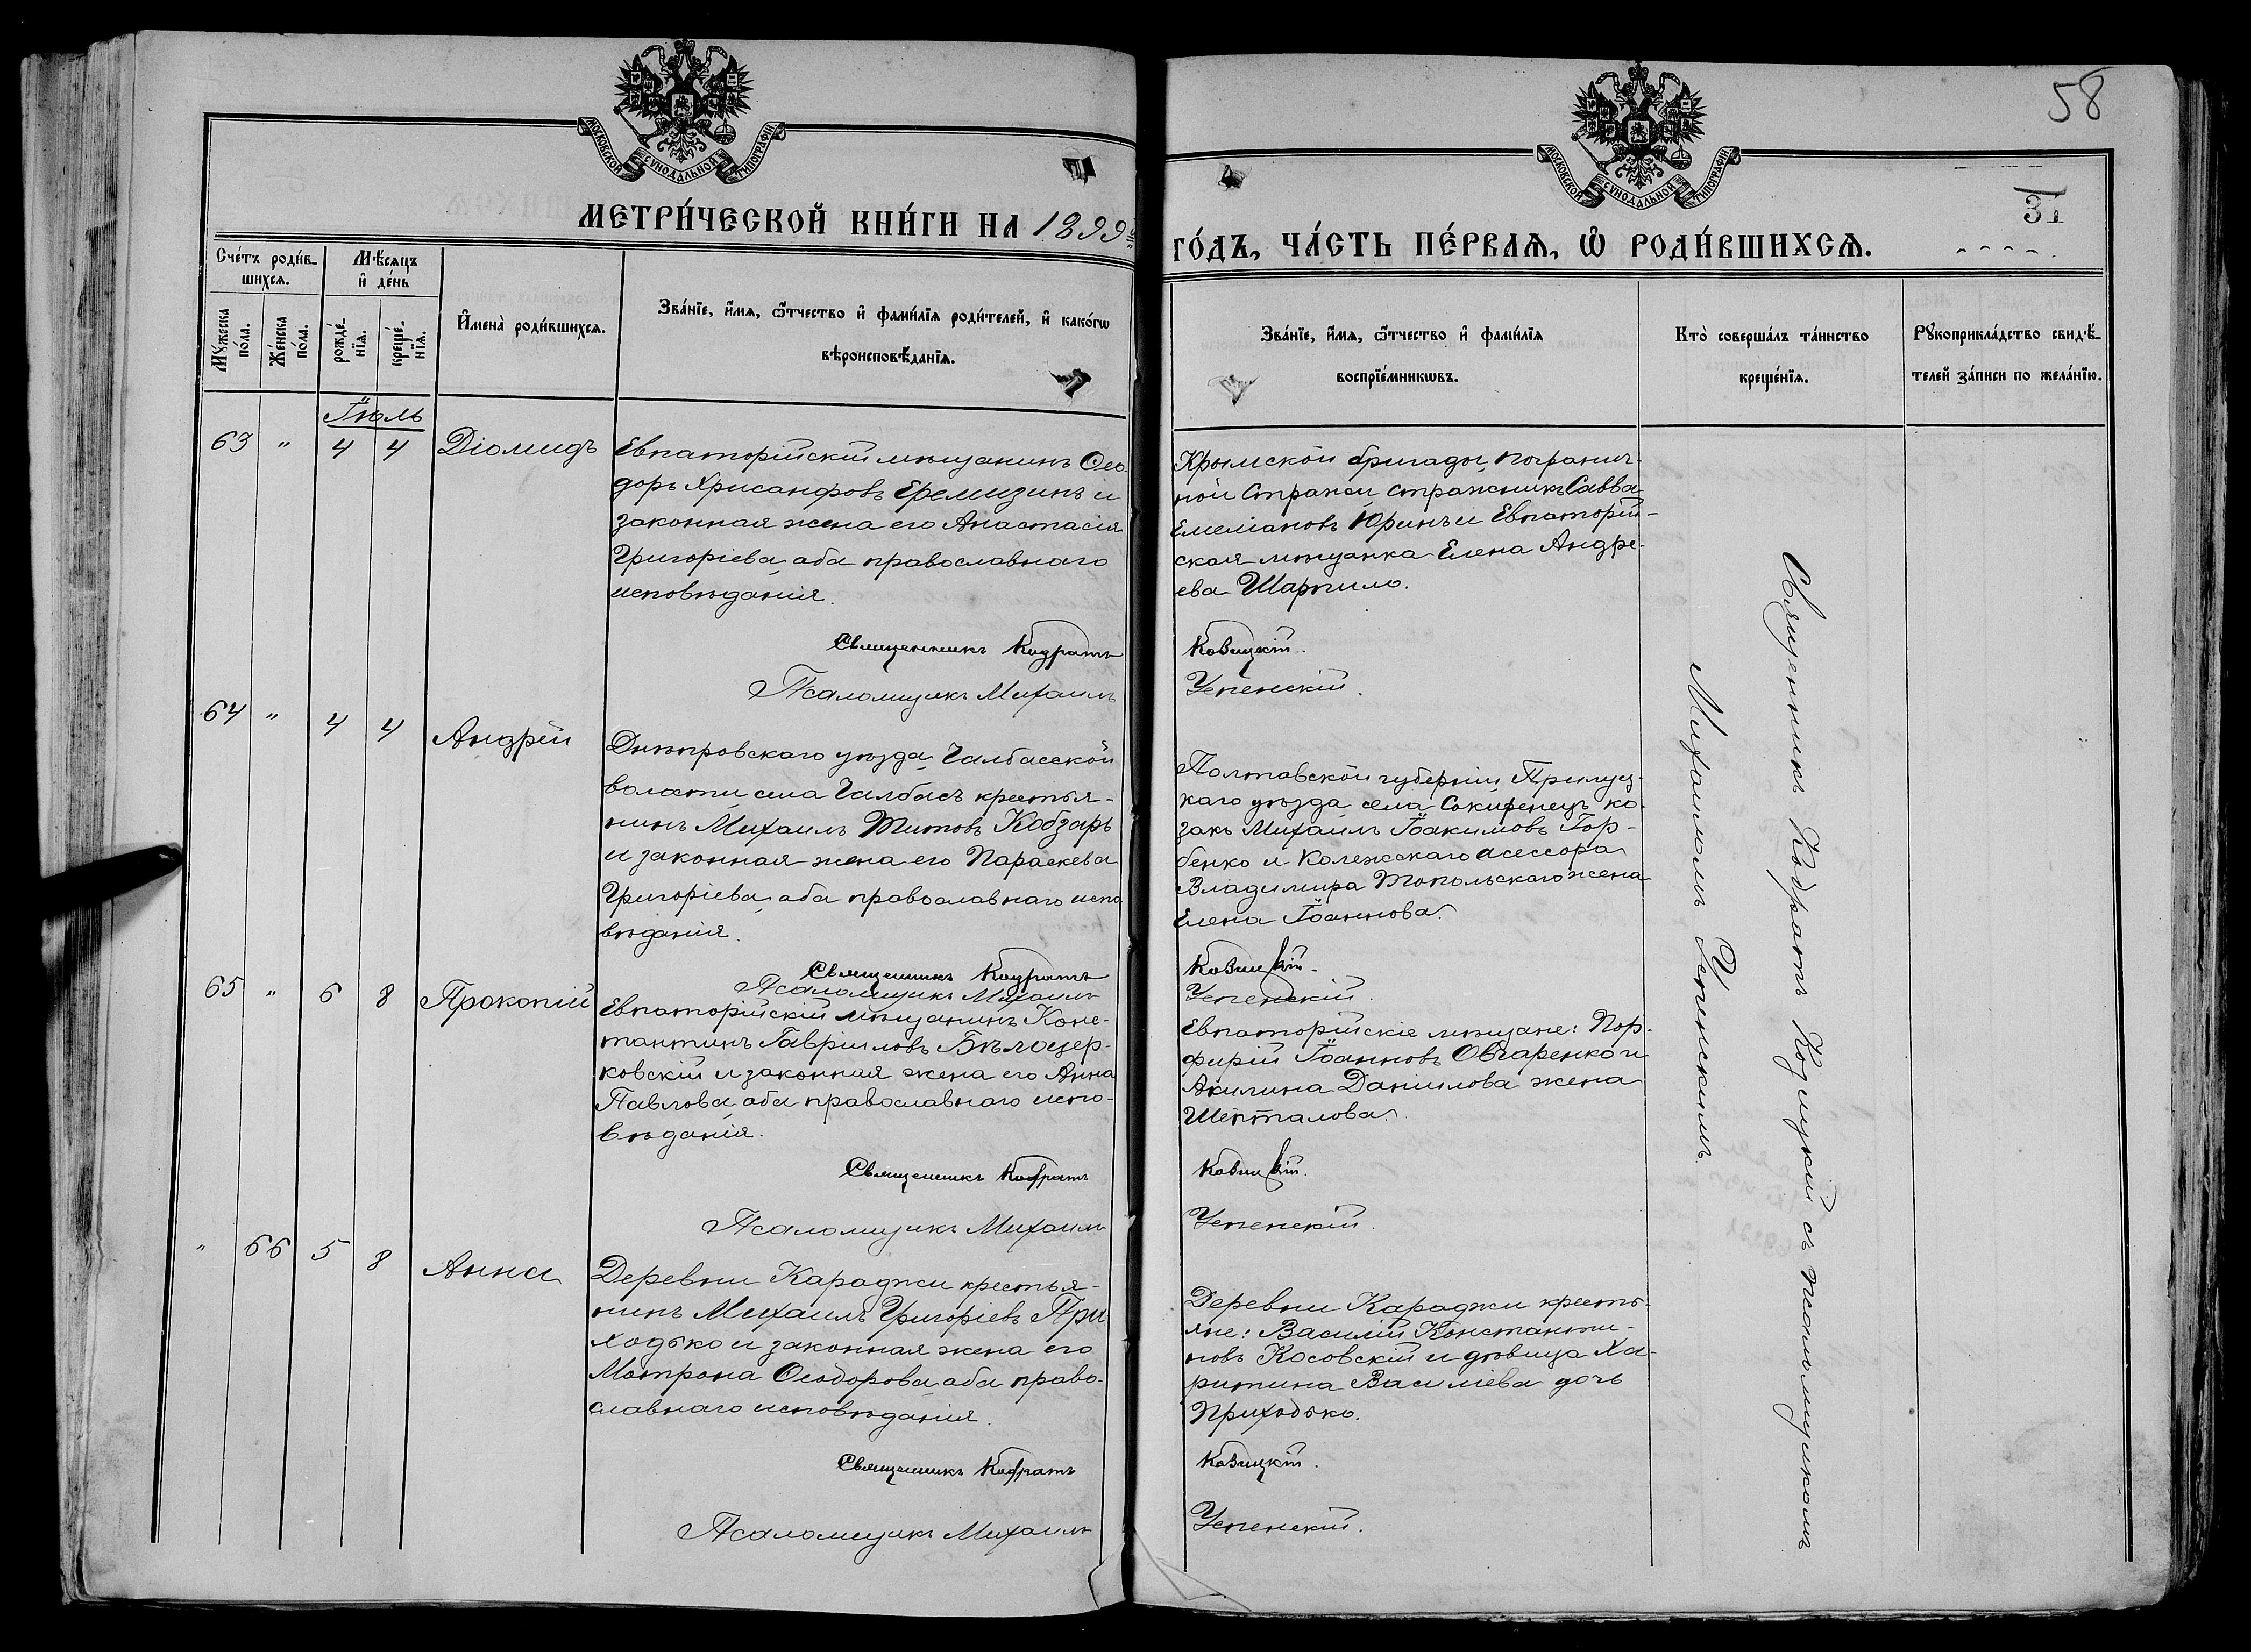 58
МОСКОВСКОЙ СѴНОДАЛЬНОЙ ТИПОГРАФІИ
МОСКОВСКОЙ СѴНОДАЛЬНОЙ ТИПОГРАФІИ
31
МЕТРИ́ЧЕСКОЙ КНИ́ГИ НА 1899
ГО́ДЪ, ЧА́СТЬ ПЕ́РВАЯ, Ѡ РОДИ́ВШИХСЯ.
Сче́тъ роди́в-
шихся.
Мѣ́сяцъ
и де́нь
Му́жеска
по́ла.
Же́нска
по́ла.
рожде́-
нїя.
креще́-
нїя.
Имена̀ роди́вшихся.
Зва́нїе, и́мя, ѻ́тчество и фами́лїя роди́телей, и како́гѡ
вѣроисповѣ́данїя.
Зва́нїе, и́мя, ѻ́тчество и фами́лїя
воспрїе́мникѡвъ.
Кто̀ соверша́лъ та́инство
креще́нїя.
Рꙋкоприкла́дство свидѣ́-
телей за́писи по жела́нїю.
Іюль
63 " 4 4 Діомидъ
Евпаторійскій мѣщанинъ Ѳео-
доръ Хрисанфовъ Еремизинъ и
законная жена его Анастасія
Григоріева, оба православнаго
исповѣданія.
Священникъ Кодратъ
Псаломщикъ Михаилъ
Крымской бригады погранич-
ной Стражи стражникъ Савва
Емеліановъ Юринъ и Евпаторій-
ская мѣщанка Елена Андре-
ева Шарпило.
Козицкій.
Успенскій.
64 " 4 4 Андрей
Днѣпровскаго уѣзда, Чалбасской
волости села Чалбасъ крестья-
нинъ Михаилъ Титовъ Кобзарь
и законная жена его Параскева
Григоріева, оба православнаго испо-
вѣданія.
Священникъ Кодратъ
Псаломщикъ Михаилъ
Полтавской губерніи, Прилуц-
каго уѣзда села Сокиренецъ ко-
закъ Михаилъ Іоакимовъ Гор-
бенко и Колежскаго асессора
Владимира Топольскаго жена
Елена Іоаннова.
Козицкій.
Успенскій.
65 " 6 8 Прокопій
Евпаторійскій мѣщанинъ Конс-
тантинъ Гавріиловъ Бѣлоцер-
ковскій и законная жена его Анна
Павлова, оба православнаго испо-
вѣданія.
Священникъ Кодратъ
Псаломщикъ Михаилъ
Евпаторійскіе мѣщане: Пор-
фирій Іоанновъ Овчаренко и
Акилина Даніилова жена
Шепталова.
Козицкій.
Успенскій.
" 66 5 8 Анна
Деревни Караджи крестья-
нинъ Михаилъ Григоріевъ При-
ходько и законная жена его
Мотрона Ѳеодорова, оба право-
славнаго исповѣданія.
Священникъ Кодратъ
Псаломщикъ Михаилъ
Деревни Караджи кресть-
яне: Василій Константи-
новъ Косовскій и дѣвица Ха-
ритина Василіева дочь
Приходько.
Козицкій.
Успенскій.
Священникъ Кодратъ Козицкій съ псаломщикомъ
Михаиломъ Успенскимъ.